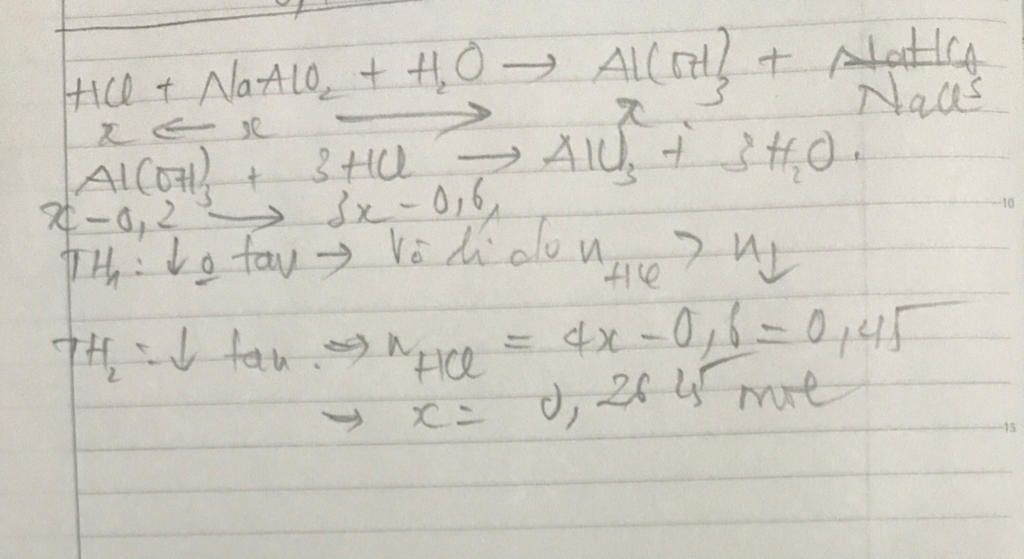 HCl + NaAlO₂ + H₂O → Al(OH)₃ + NaCl
x ← x → x
Al(OH)₃ + 3HCl → AlCl₃ + 3H₂O.
x - 0,2 → 3x - 0,6
10
TH₁: ↓ o tan → Vô lí do n_HCl > n↓
TH₂: ↓ tan. → n_HCl = 4x - 0,6 = 0,45
→ x = 0,2625 mol
15